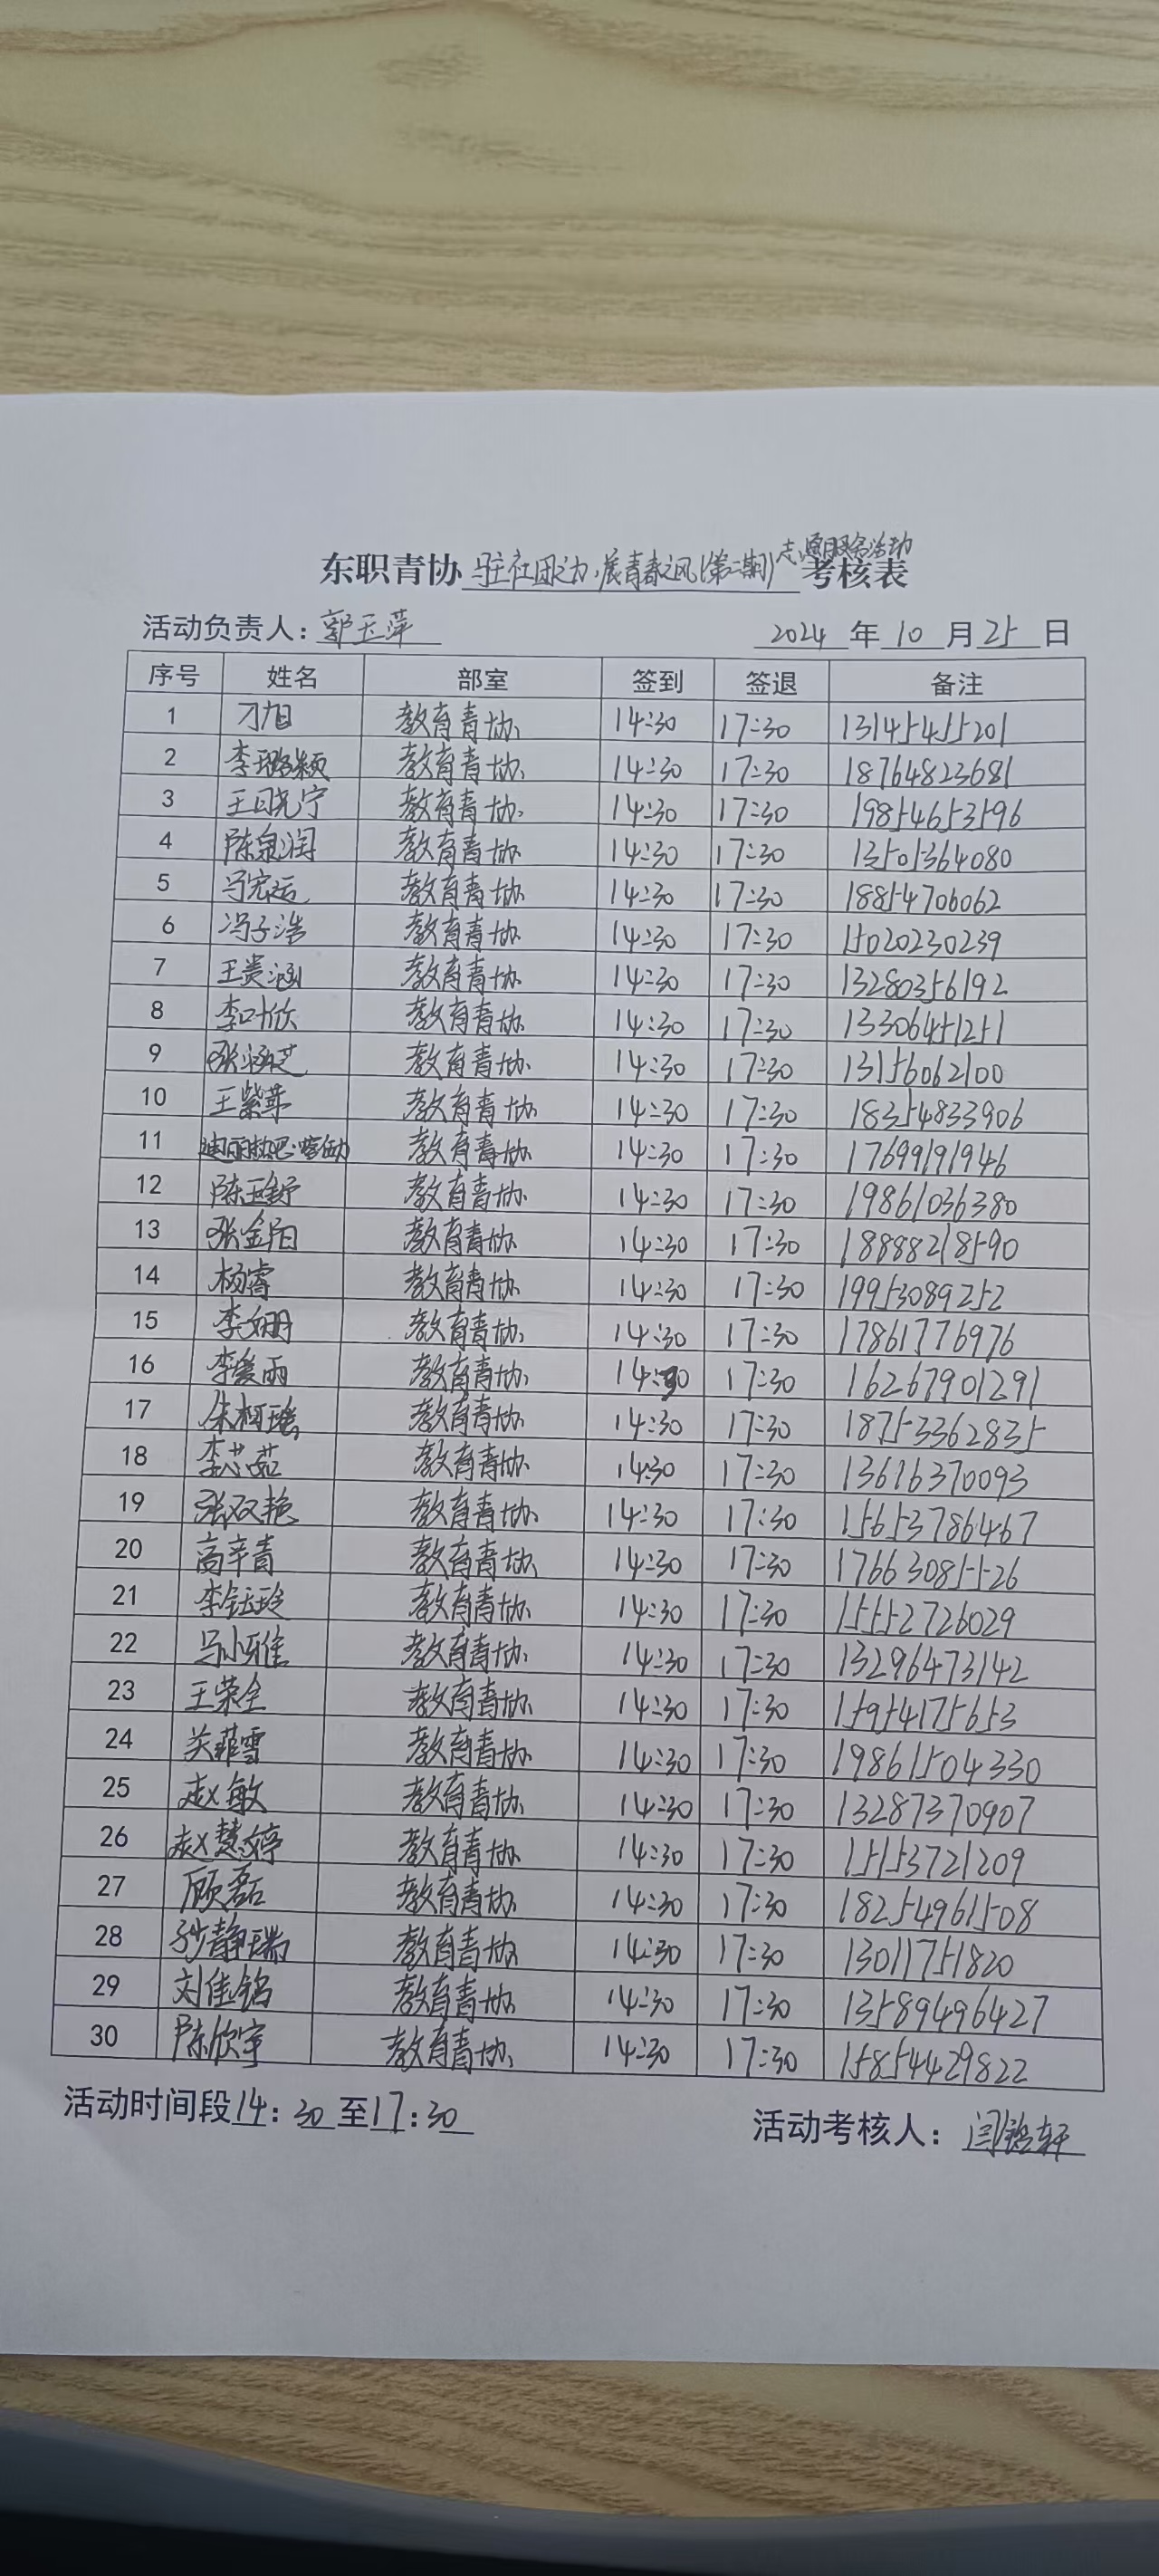 志愿服务活动
东职青协 驻社团之力,展青春之风(第二期) 考核表
活动负责人: 郭玉萍 2024 年 10 月 25 日
序号 姓名 部室 签到 签退 备注
1 刁旭 教育青协 14:30 17:30 13145455201
2 李璐颖 教育青协 14:30 17:30 18764823681
3 王晓宁 教育青协 14:30 17:30 19854653596
4 陈泉润 教育青协 14:30 17:30 13505364080
5 马宏运 教育青协 14:30 17:30 18854706062
6 冯子浩 教育青协 14:30 17:30 15020230239
7 王贵涵 教育青协 14:30 17:30 13280356192
8 李叶欣 教育青协 14:30 17:30 13306451251
9 张涵芝 教育青协 14:30 17:30 13156062100
10 王紫菲 教育青协 14:30 17:30 18354833906
11 教育青协 14:30 17:30 17699191946
12 陈玉舒 教育青协 14:30 17:30 19861036380
13 张金阳 教育青协 14:30 17:30 18888218590
14 杨睿 教育青协 14:30 17:30 19953089252
15 李姗 教育青协 14:30 17:30 17861776976
16 李爱雨 教育青协 14:30 17:30 16267901291
17 朱柯瑶 教育青协 14:30 17:30 18753362835
18 教育青协 14:30 17:30 13616370093
19 张双艳 教育青协 14:30 17:30 15653786467
20 高辛青 教育青协 14:30 17:30 17663085526
21 李钰玲 教育青协 14:30 17:30 15552726029
22 马小雅 教育青协 14:30 17:30 13296473142
23 王荣全 教育青协 14:30 17:30 15954175653
24 关菲雪 教育青协 14:30 17:30 19861504330
25 赵敏 教育青协 14:30 17:30 13287370907
26 赵慧婷 教育青协 14:30 17:30 15153721209
27 顾磊 教育青协 14:30 17:30 18254961508
28 孙静瑞 教育青协 14:30 17:30 13011751820
29 刘佳铭 教育青协 14:30 17:30 13589496427
30 陈欣宇 教育青协 14:30 17:30 15854429822
活动时间段 14 : 30 至 17 : 30 活动考核人: 闫铭轩